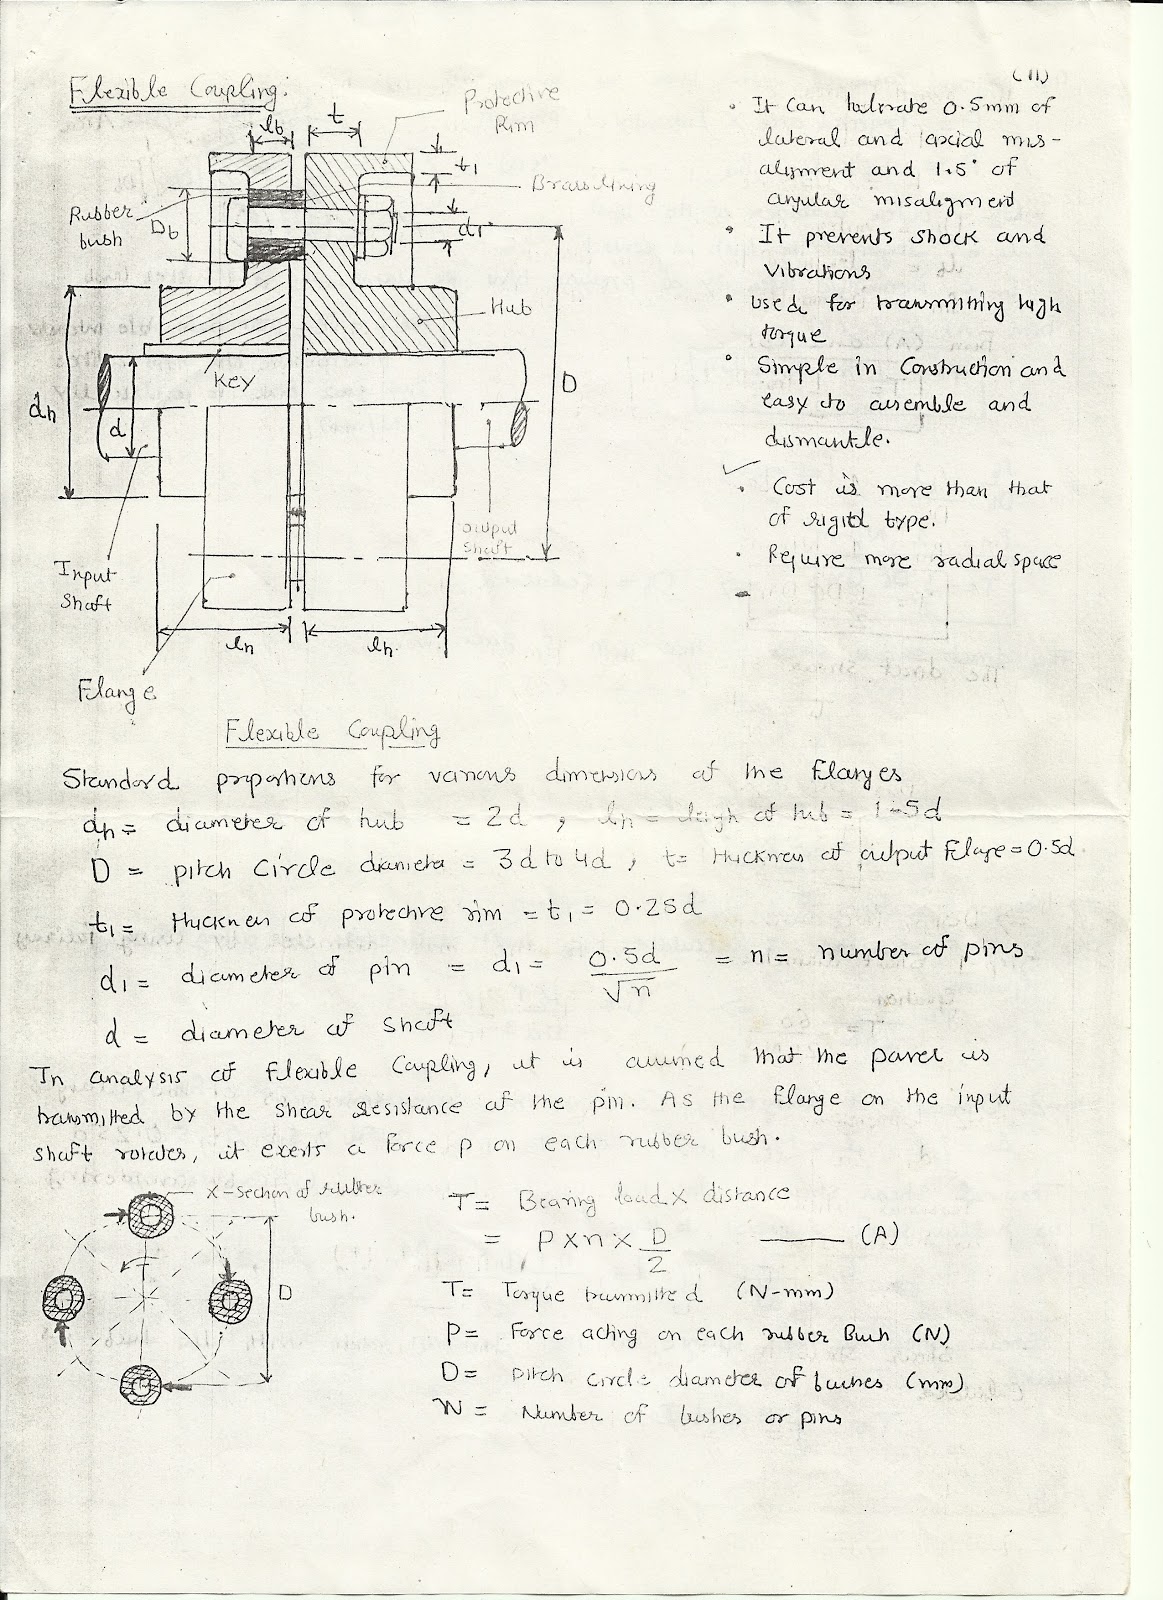 (11)
Flexible Coupling:
lb
t
Protective
Rim
t1
Brass lining
Rubber
bush
Db
d1
Hub
Key
dh
d
D
output
shaft
Input
shaft
lh
lh
Flange
Flexible Coupling
• It can tolerate 0.5mm of
lateral and axial mis-
alignment and 1.5° of
angular misaligment
• It prevents shock and
vibrations
• Used for transmitting high
torque
• Simple in construction and
easy to assemble and
dismantle.
• Cost is more than that
of rigid type.
• Require more radial space
Standard proportions for various dimensions of the flanges
dh = diameter of hub = 2d , lh = length of hub = 1.5d
D = pitch circle diameter = 3d to 4d , t = thickness of output flange = 0.5d
t1 = thickness of protective rim = t1 = 0.25d
d1 = diameter of pin = d1 = 0.5d/√n = n = number of pins
d = diameter of shaft
In analysis of flexible coupling, it is assumed that the power is
transmitted by the shear resistance of the pin. As the flange on the input
shaft rotates, it exerts a force P on each rubber bush.
X-section of rubber
bush.
D
T = Bearing load x distance
= P x n x D/2 —— (A)
T = Torque transmitted (N-mm)
P = Force acting on each rubber Bush (N)
D = pitch circle diameter of bushes (mm)
N = Number of bushes or pins